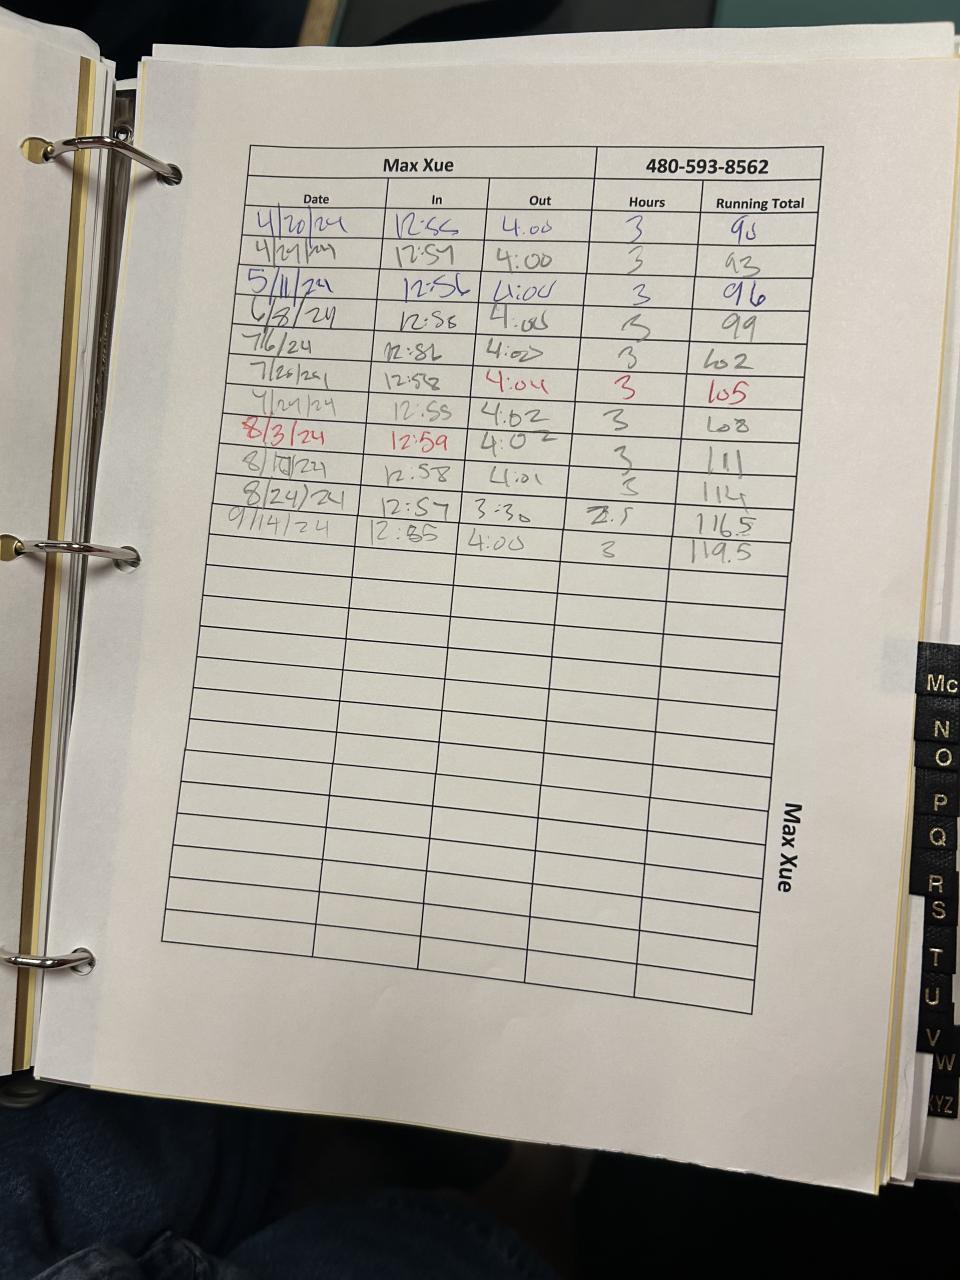 Max Xue 480-593-8562
Date In Out Hours Running Total
4/20/24 12:55 4:00 3 90
4/27/24 12:57 4:00 3 93
5/11/24 12:56 4:00 3 96
6/8/24 12:58 4:00 3 99
7/6/24 4:00 3 102
7/20/24 12:58 4:04 3 105
7/27/24 12:55 4:02 3 108
8/3/24 12:59 4:02 3 111
12:58 4:01 3 114
8/24/24 12:57 3:30 2.5 116.5
9/14/24 12:55 4:00 3 119.5
Max Xue
Mc
N
O
P
Q
R
S
T
U
V
W
XYZ